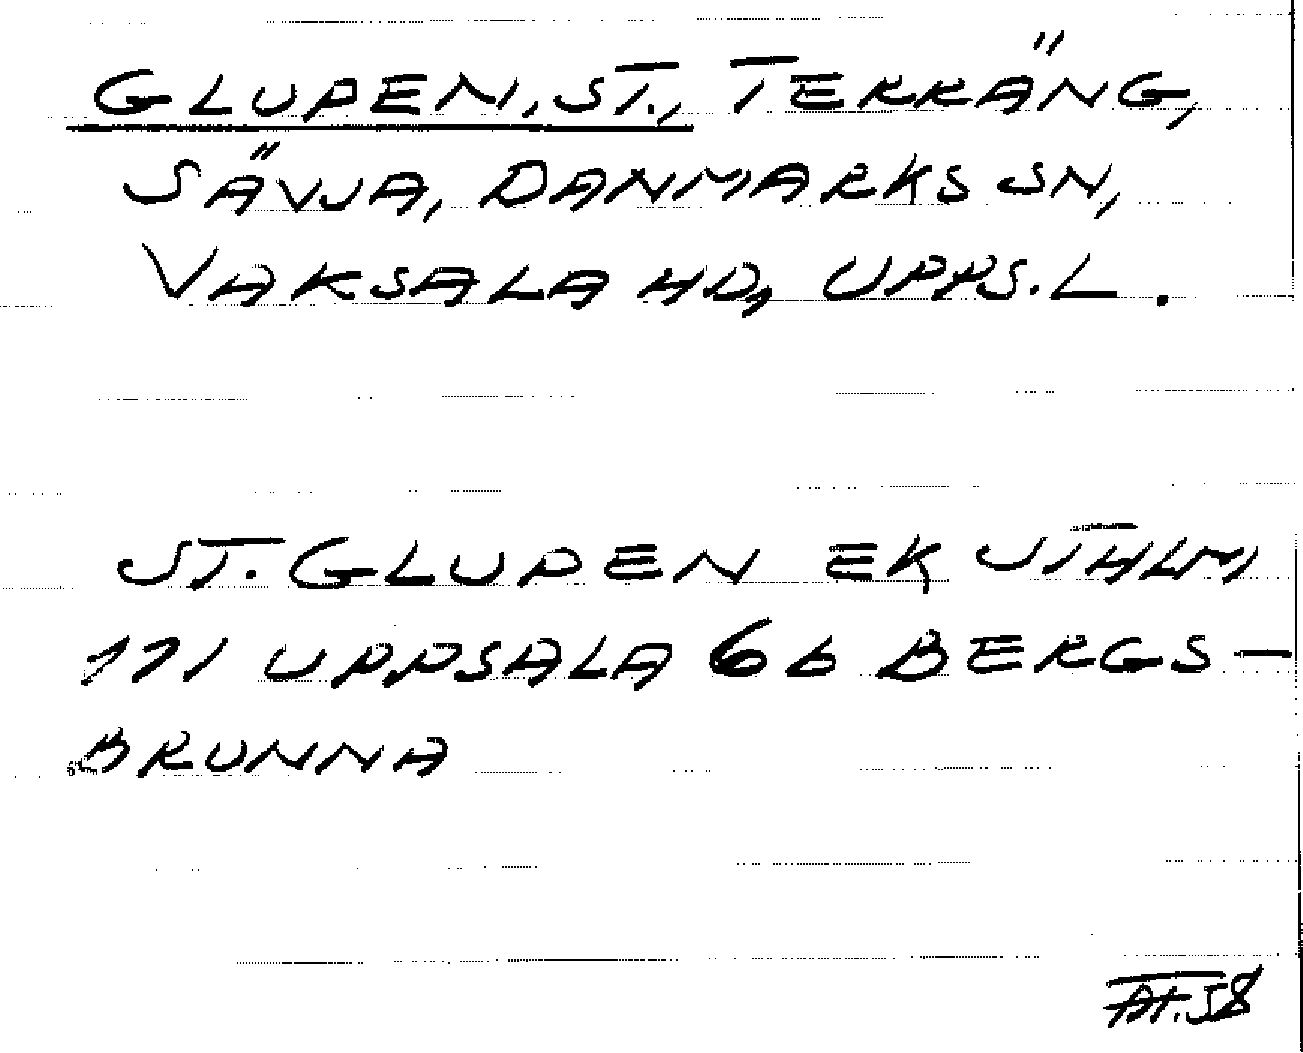 GLUPEN, ST., TERRÄNG,
SÄVJA, DANMARKS SN,
VAKSALA HD, UPPS.L.
ST. GLUPEN EK STHLM
171 UPPSALA 6b BERGS-
BRUNNA